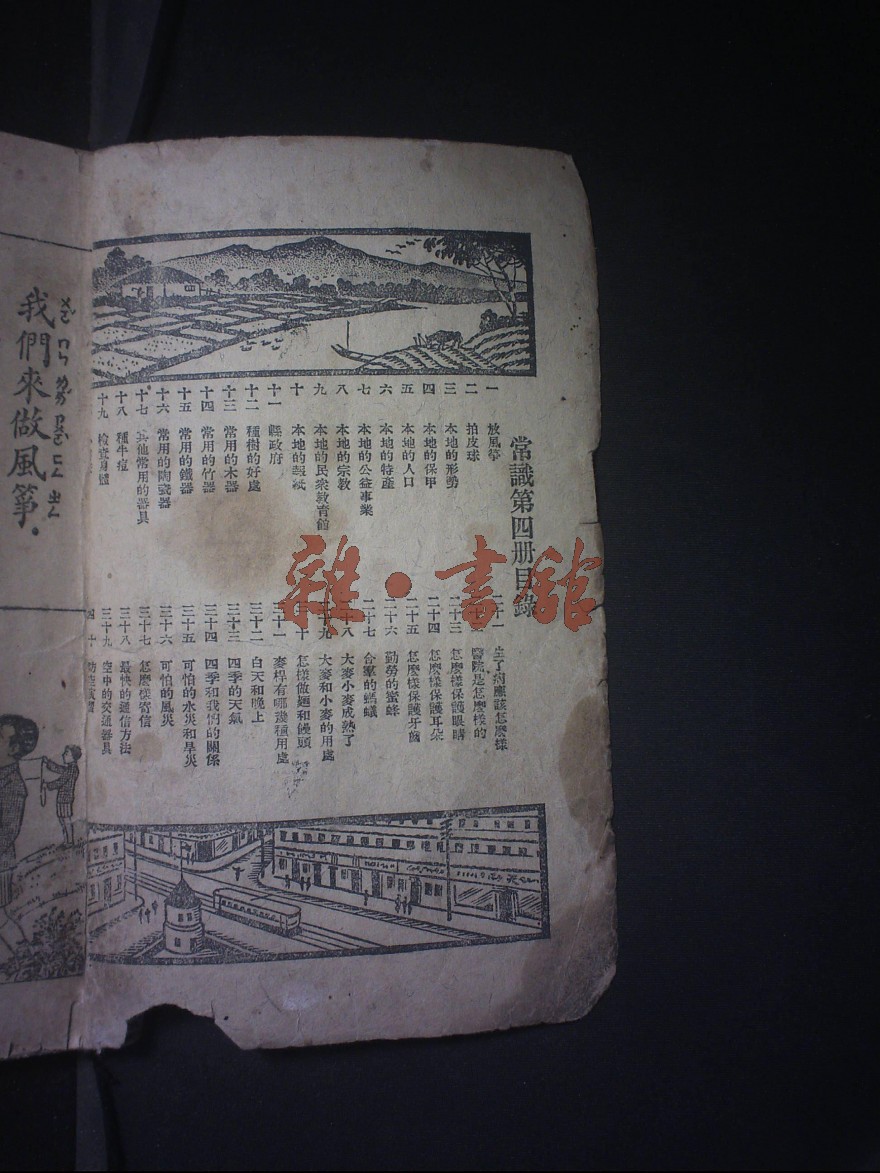 常識第四册目錄
一 放風箏
二 拍皮球
三 本地的形勢
四 本地的保甲
五 本地的人口
六 本地的特產
七 本地的公益事業
八 本地的宗教
九 本地的民衆教育館
十 本地的報紙
十一 縣政府
十二 種樹的好處
十三 常用的木器
十四 常用的竹器
十五 常用的鐵器
十六 常用的陶瓷器
十七 其他常用的器具
十八 種牛痘
十九 檢查身體
二十一 生了病應該怎麼樣
二十二 醫院是怎麼樣的
二十三 怎麼樣保護眼睛
二十四 怎麼樣保護耳朵
二十五 怎麼樣保護牙齒
二十六 勤勞的蜜蜂
二十七 合羣的螞蟻
二十八 大麥小麥成熟了
二十九 大麥和小麥的用處
三十 怎樣做麵和饅頭
三十一 麥桿有哪幾種用處
三十二 白天和晚上
三十三 四季的天氣
三十四 四季和我們的關係
三十五 可怕的水災和旱災
三十六 可怕的風災
三十七 怎麼樣寄信
三十八 最快的通信方法
三十九 空中的交通器具
四十
我們來做風箏。
雜·書舘